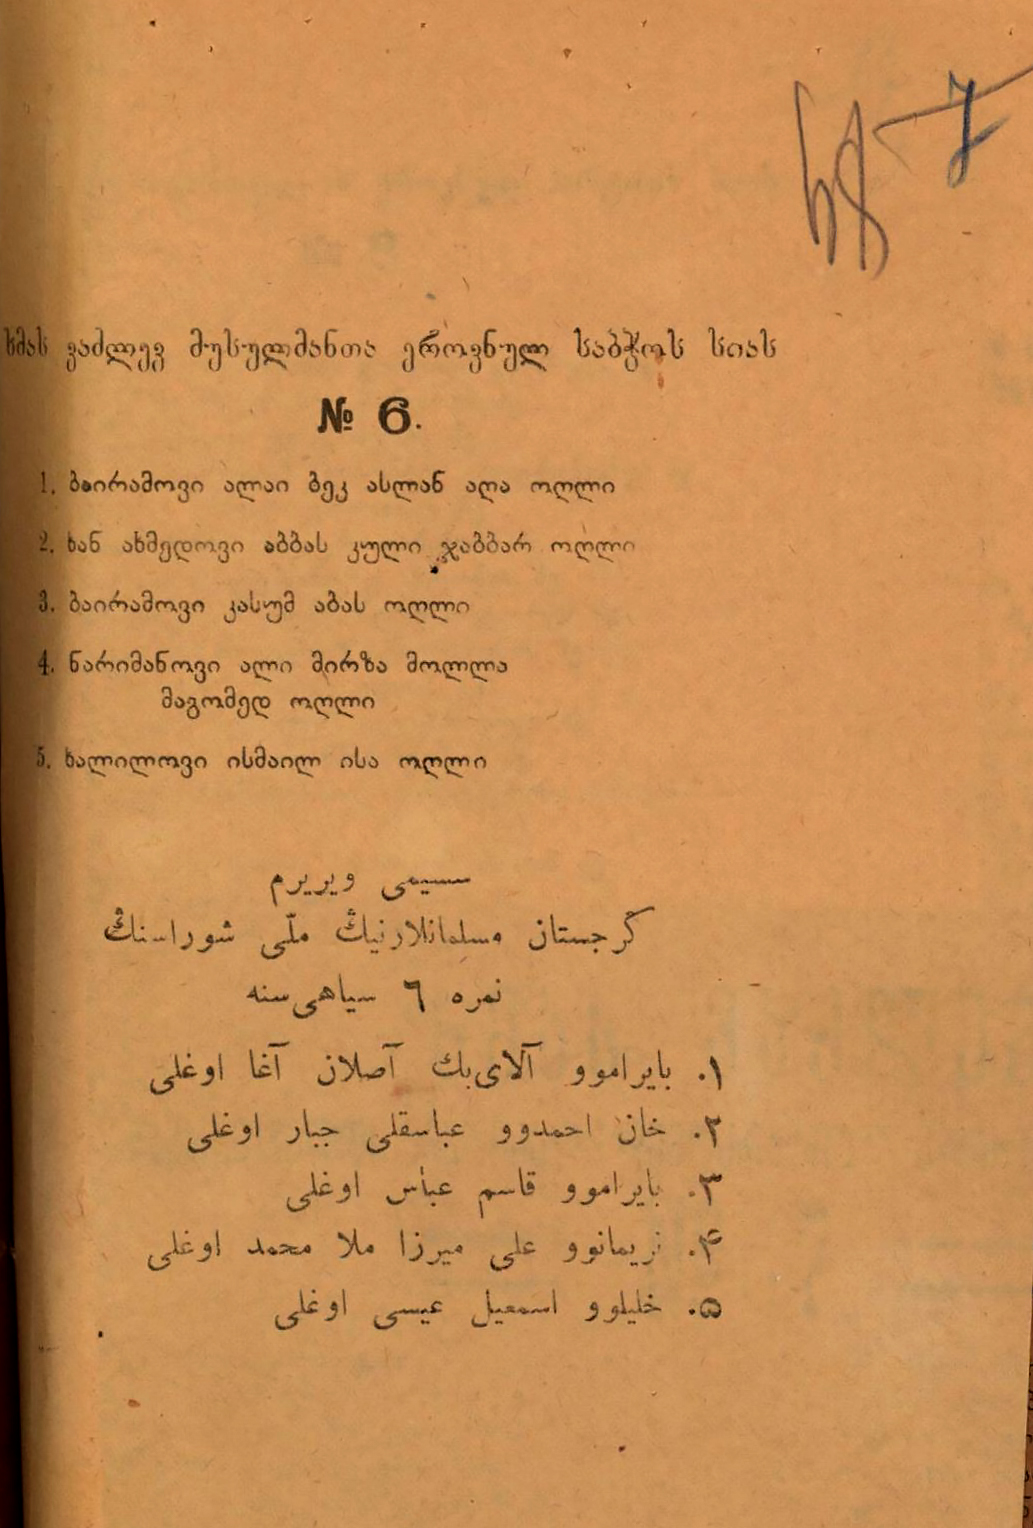 ხმას ვაძლევ მუსულმანთა ეროვნულ საბჭოს სიას
№ 6.
1. ბაირამოვი ალაი ბეკ ასლან აღა ოღლი
2. ხან ახმედოვი აბბას კული ჯაბბარ ოღლი
3. ბაირამოვი კასუმ აბას ოღლი
4. ნარიმანოვი ალი მირზა მოლლა
მაგომედ ოღლი
5. ხალილოვი ისმაილ ისა ოღლი
سسیمی ویریرم
گرجستان مسلمانلارنیڭ ملّی شوراسنڭ
نمره ٦ سیاهی‌سنه
۱. بایراموو آلای‌بك آصلان آغا اوغلی
۲. خان احمدوو عباسقلی جبار اوغلی
۳. بایراموو قاسم عباس اوغلی
۴. نریمانوو علی میرزا ملا محمد اوغلی
۵. خلیلوو اسمعیل عیسی اوغلی